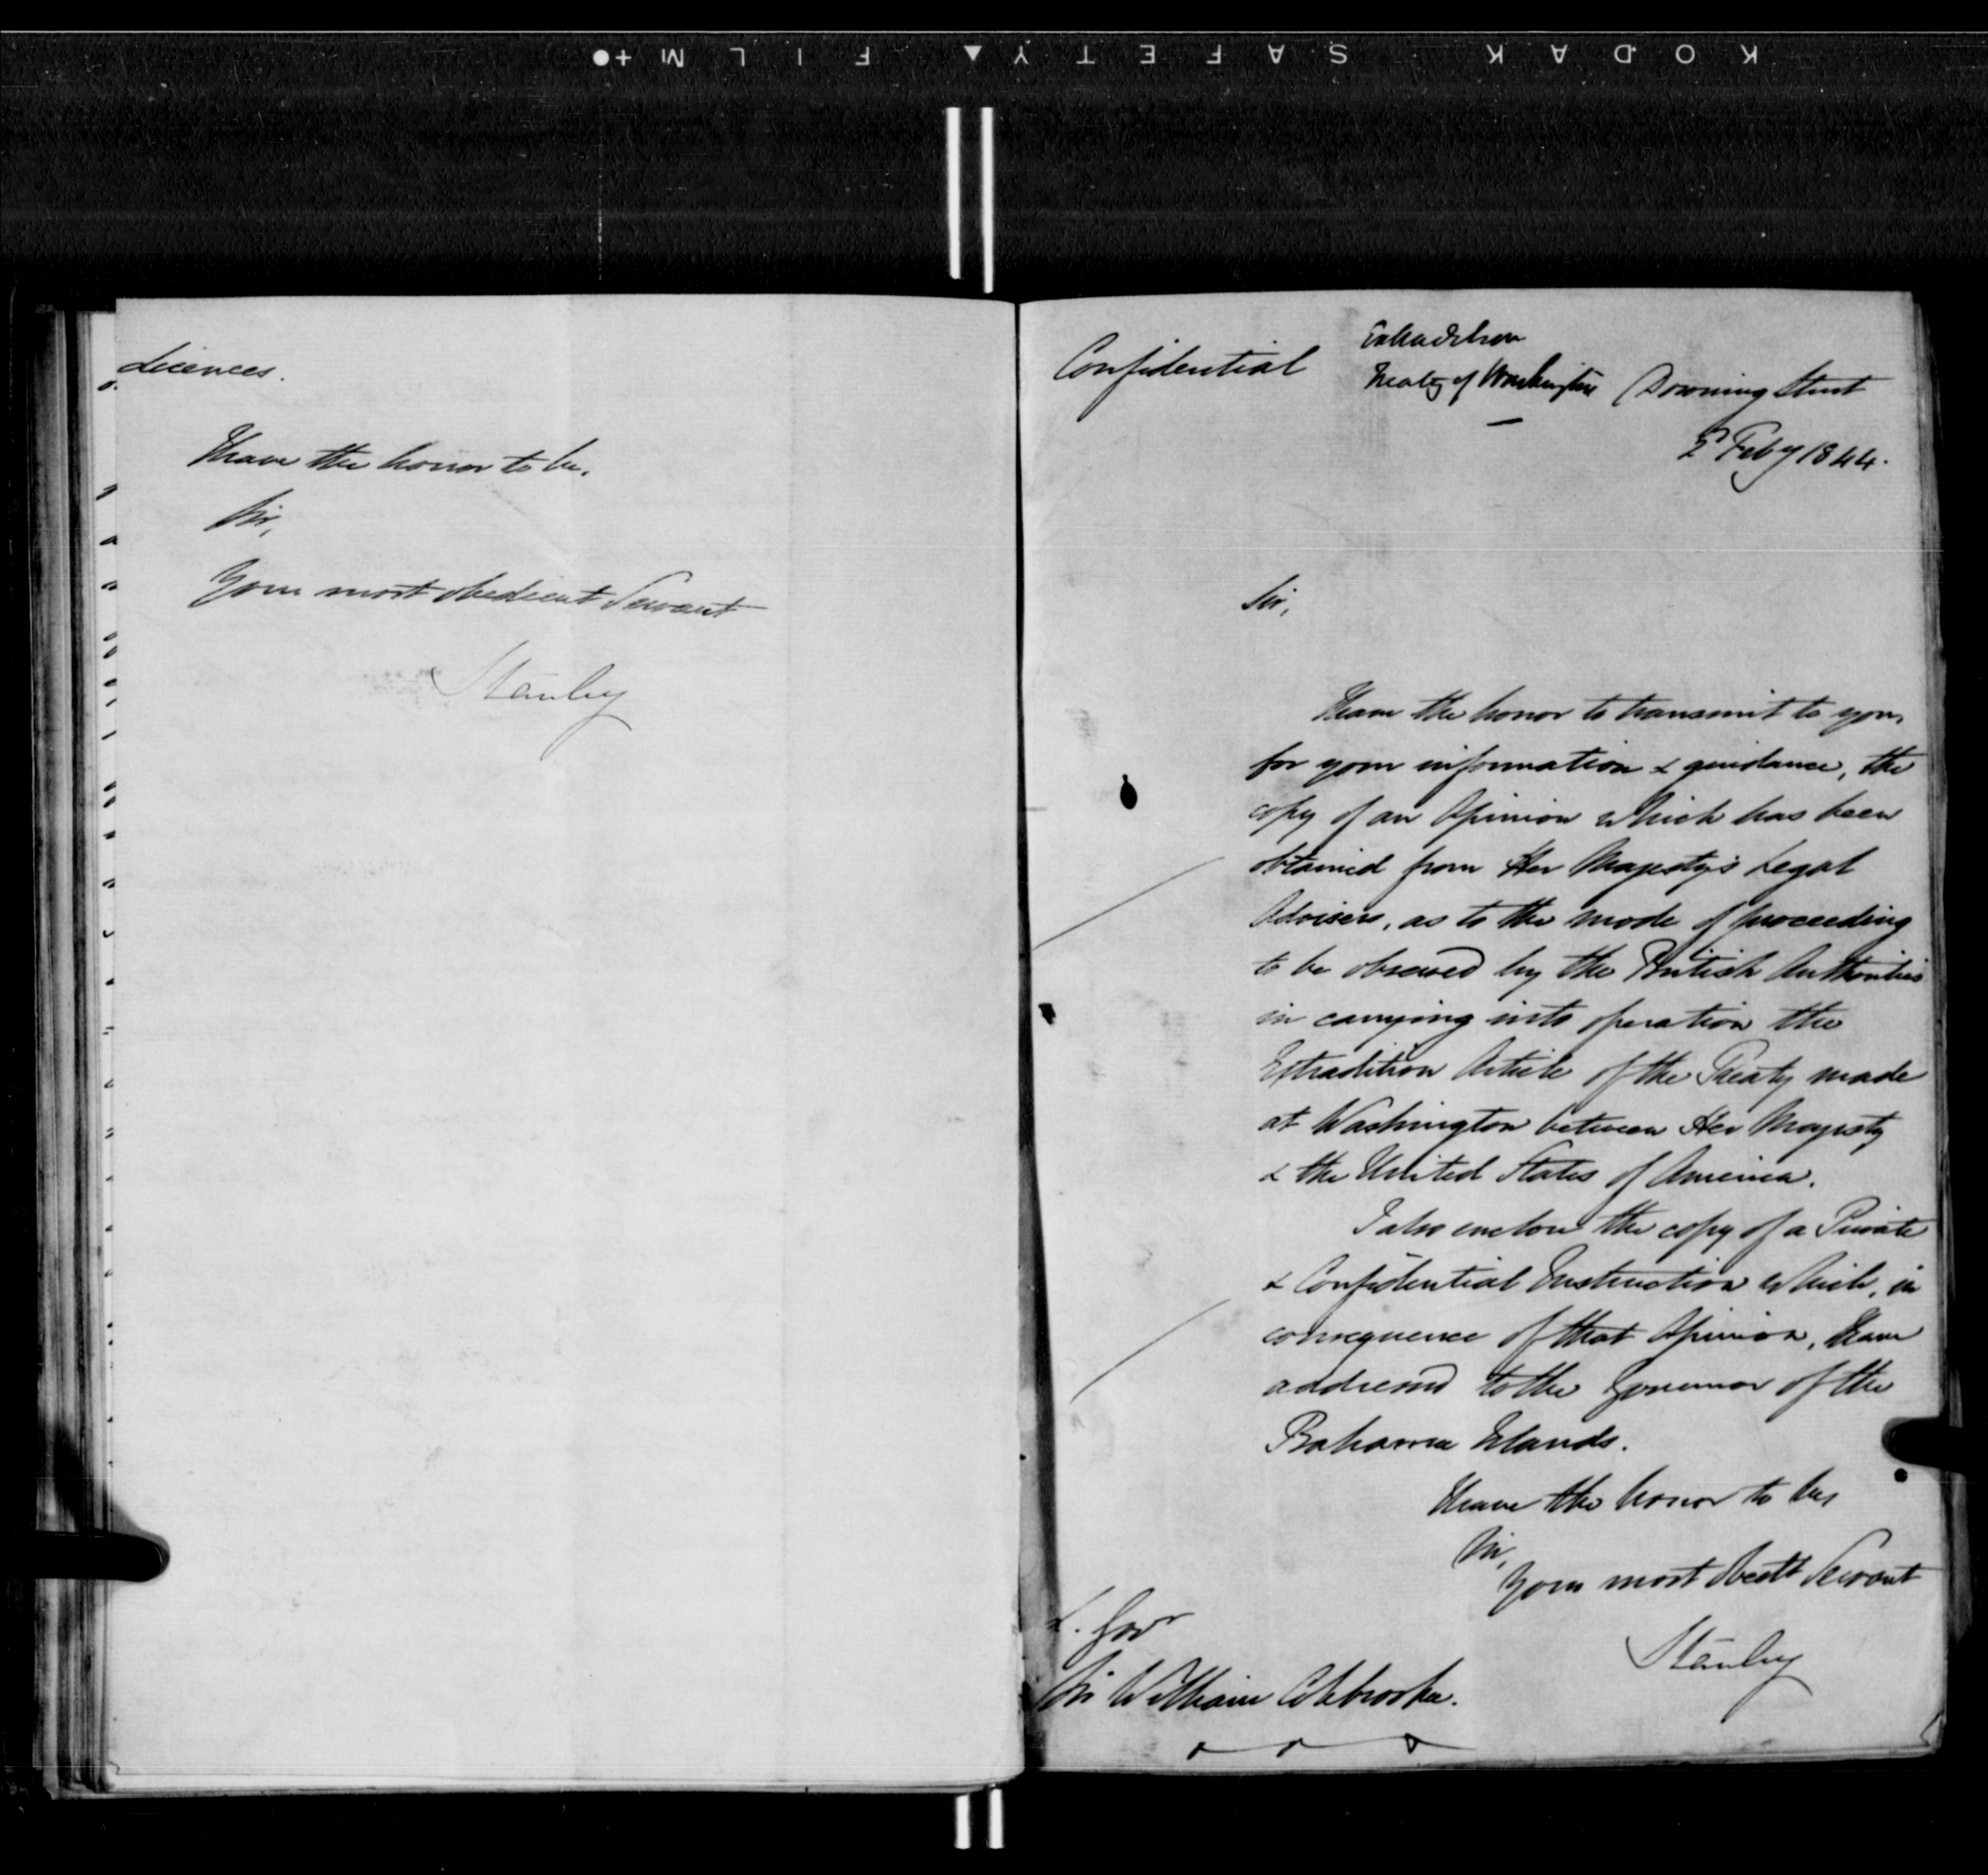 KODAK SAFETY FILM
Licences.
I have the honor to be,
Sir,
Your most obedient Servant
Stanley
Confidential
Extradition
Treaty of Washington
Downing Street
2 Feby 1844.
Sir,
I have the honor to transmit to you,
for your information & guidance, the
copy of an Opinion which has been
obtained from Her Majesty's Legal
Advisers, as to the mode of proceeding
to be observed by the British Authorities
in carrying into operation the
Extradition Article of the Treaty made
at Washington between Her Majesty
& the United States of America.
I also enclose the copy of a Private
& Confidential Instruction which, in
consequence of that Opinion, I have
addressed to the Governor of the
Bahama Islands.
I have the honor to be,
Sir,
Your most Obedt Servant
Stanley
L. Govr
Sir William Colebrooke.